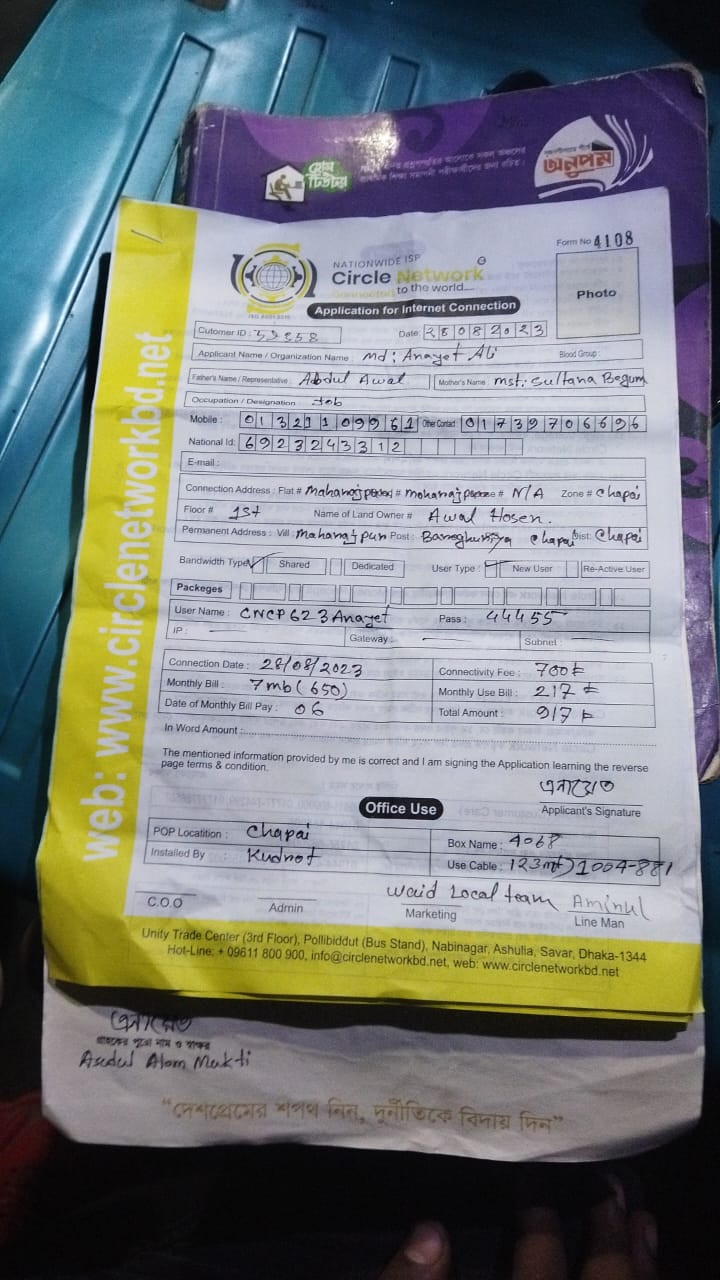 হোম টিউটর
অনুপম
NATIONWIDE ISP
Circle Network
Connected to the world....
ISO 9001:2015
Form No 4108
Photo
Application for Internet Connection
Cutomer ID :
Date: 28082023
Applicant Name / Organization Name : md: Anayet Ali Blood Group :
Father's Name / Representative : Abdul Awal Mother's Name : mst: Sultana Begum
Occupation / Designation : Job
Mobile : 01321109961 Other Contact : 01739706696
National Id: 6923243312
E-mail :
Connection Address : Flat # Maharajpur # N/A Zone # Chapai
Floor # 1st Name of Land Owner # Awal Hosen.
Permanent Address : Vill : Maharajpur Post : Chapai Dist: Chapai
Bandwidth Type: Shared Dedicated User Type : New User Re-Active User
Packeges
User Name : CNCP623Anayet Pass : 44455
IP : Gateway : Subnet :
Connection Date : 28/08/2023 Connectivity Fee : 700৳
Monthly Bill : 7mb (650) Monthly Use Bill : 217৳
Date of Monthly Bill Pay : 06 Total Amount : 917৳
In Word Amount :
The mentioned information provided by me is correct and I am signing the Application learning the reverse
page terms & condition.
এনায়েত
Applicant's Signature
Office Use
POP Locatition : Chapai Box Name : 4068
Installed By Kudrot Use Cable : 123mt) 1004-881
Waid Local team Aminul
C.O.O Admin Marketing Line Man
Unity Trade Center (3rd Floor), Pollibiddut (Bus Stand), Nabinagar, Ashulia, Savar, Dhaka-1344
Hot-Line: + 09611 800 900, info@circlenetworkbd.net, web: www.circlenetworkbd.net
web: www.circlenetworkbd.net
এনায়েত
গ্রাহকের পুরো নাম ও স্বাক্ষর
Asadul Alom Mukti
"দেশপ্রেমের শপথ নিন, দুর্নীতিকে বিদায় দিন"